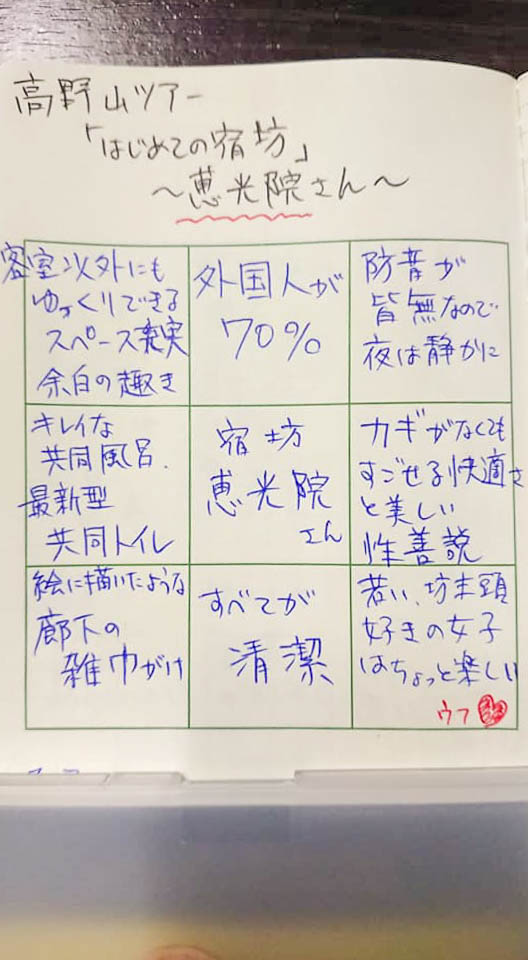 高野山ツアー
「はじめての宿坊」
～恵光院さん～
客室以外にも
ゆっくりできる
スペース充実
余白の趣き
外国人が
70%
防音が
皆無なので
夜は静かに
キレイな
共同風呂、
最新型
共同トイレ
宿坊
恵光院
さん
カギがなくても
すごせる快適さ
と美しい
性善説
絵に描いたような
廊下の
雑巾がけ
すべてが
清潔
若い、坊主頭
好きの女子
はちょっと楽しい
ウフ